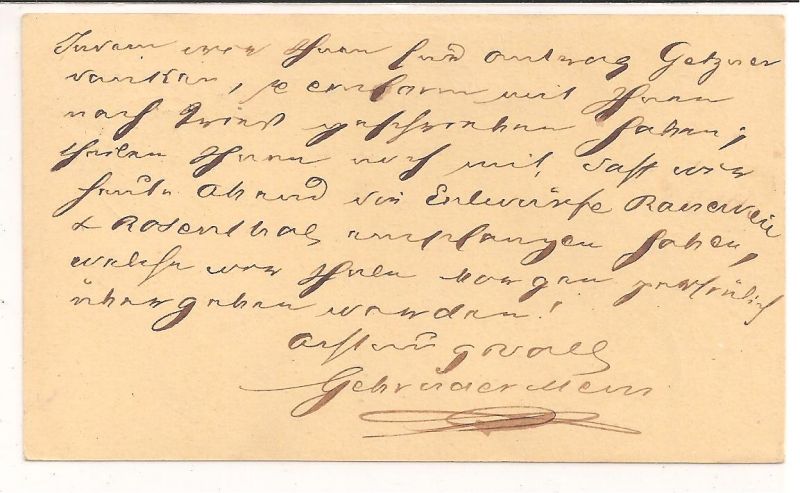 Indem wir Ihnen für Antrag Getzner
danken, conform mit Ihnen
nach Triest geschrieben haben,
theilen Ihnen noch mit, daß wir
heute Abend die Entwürfe
& Rosenthal empfangen haben,
welche wir Ihnen morgen persönlich
übergeben werden!
Achtungsvoll
Gebrüder